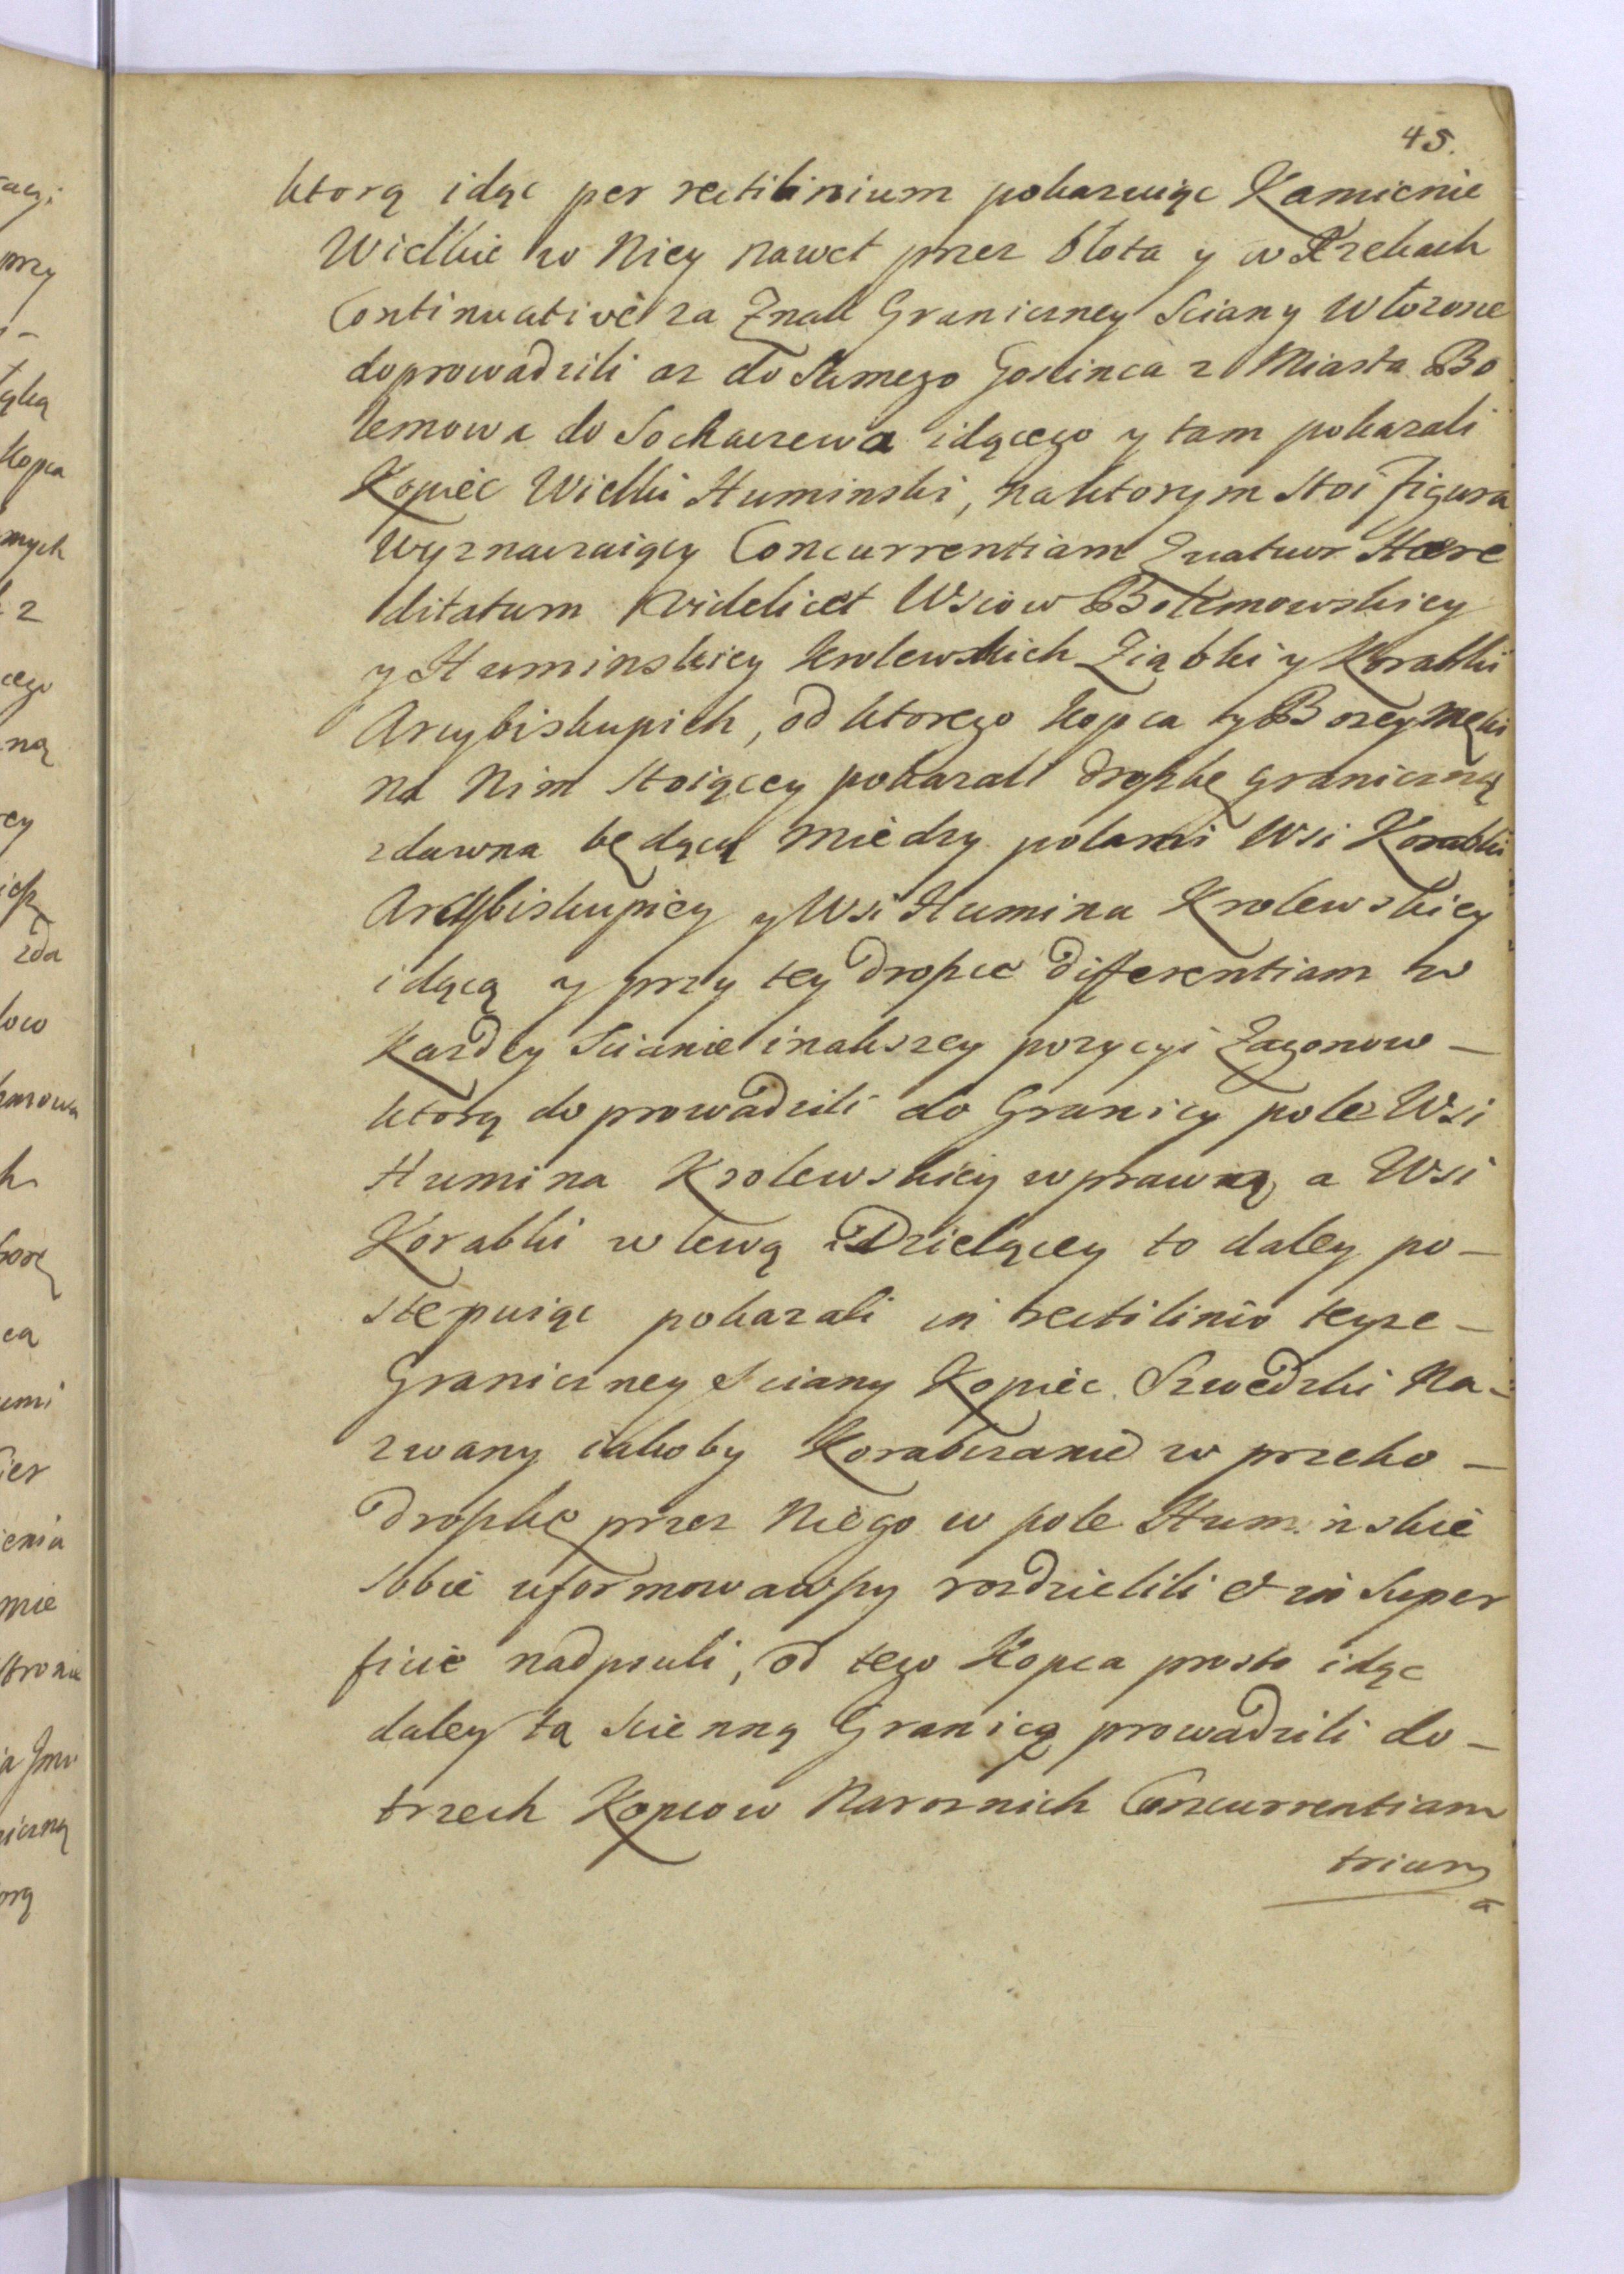 45.
ktorą idąc per rectilinium pokazuiąc Kamienie
Wielkie w Niey nawet przez błota y w Rzekach
Continuativè za Znak Graniczney Sciany Włozone
doprowadzili az do Samego Goscinca z Miasta Bo
lemowa do Sochaczewa idącego y tam pokazali
Kopiec Wielki Huminski, na ktorym Stoi figura
Wyznaczaiący Concurrentiam Quatuor Hære
ditatum videlicet Wsiow Bolemowskiey
y Huminskiey Krolewskich Ziąbki y Korabki
Arcybiskupich, od ktorego Kopca ty Bozey męki
na Nim Stoiącey pokazali drożkę graniczną
zdawna będącą między polami Wsi Korabki
Arcybiskupiey y Wsi Humina Krolewskiey
idącą y przy tey drożce differentiam w
Kazdey Scianie inakszey pozycyi Zagonow –
ktorą doprowadzili do Granicy pole Wsi
Humina Krolewskiey w prawną a Wsi
Korabki w lewą Dzielącey to daley po –
stępuiąc pokazali in rectilinio teyze –
Graniczney Sciany Kopiec Szwedzki Na –
zwany iakoby Korabczanie w przeko –
drożkę przez Niego w pole Huminskie
sobie uformowawszy rozdzielili et in Super
ficie nadpsuli, od tego Kopca prosto idąc
daley tą scienną Granicą prowadzili do –
trzech Kopcow Naroznich Concurrentiam
trium